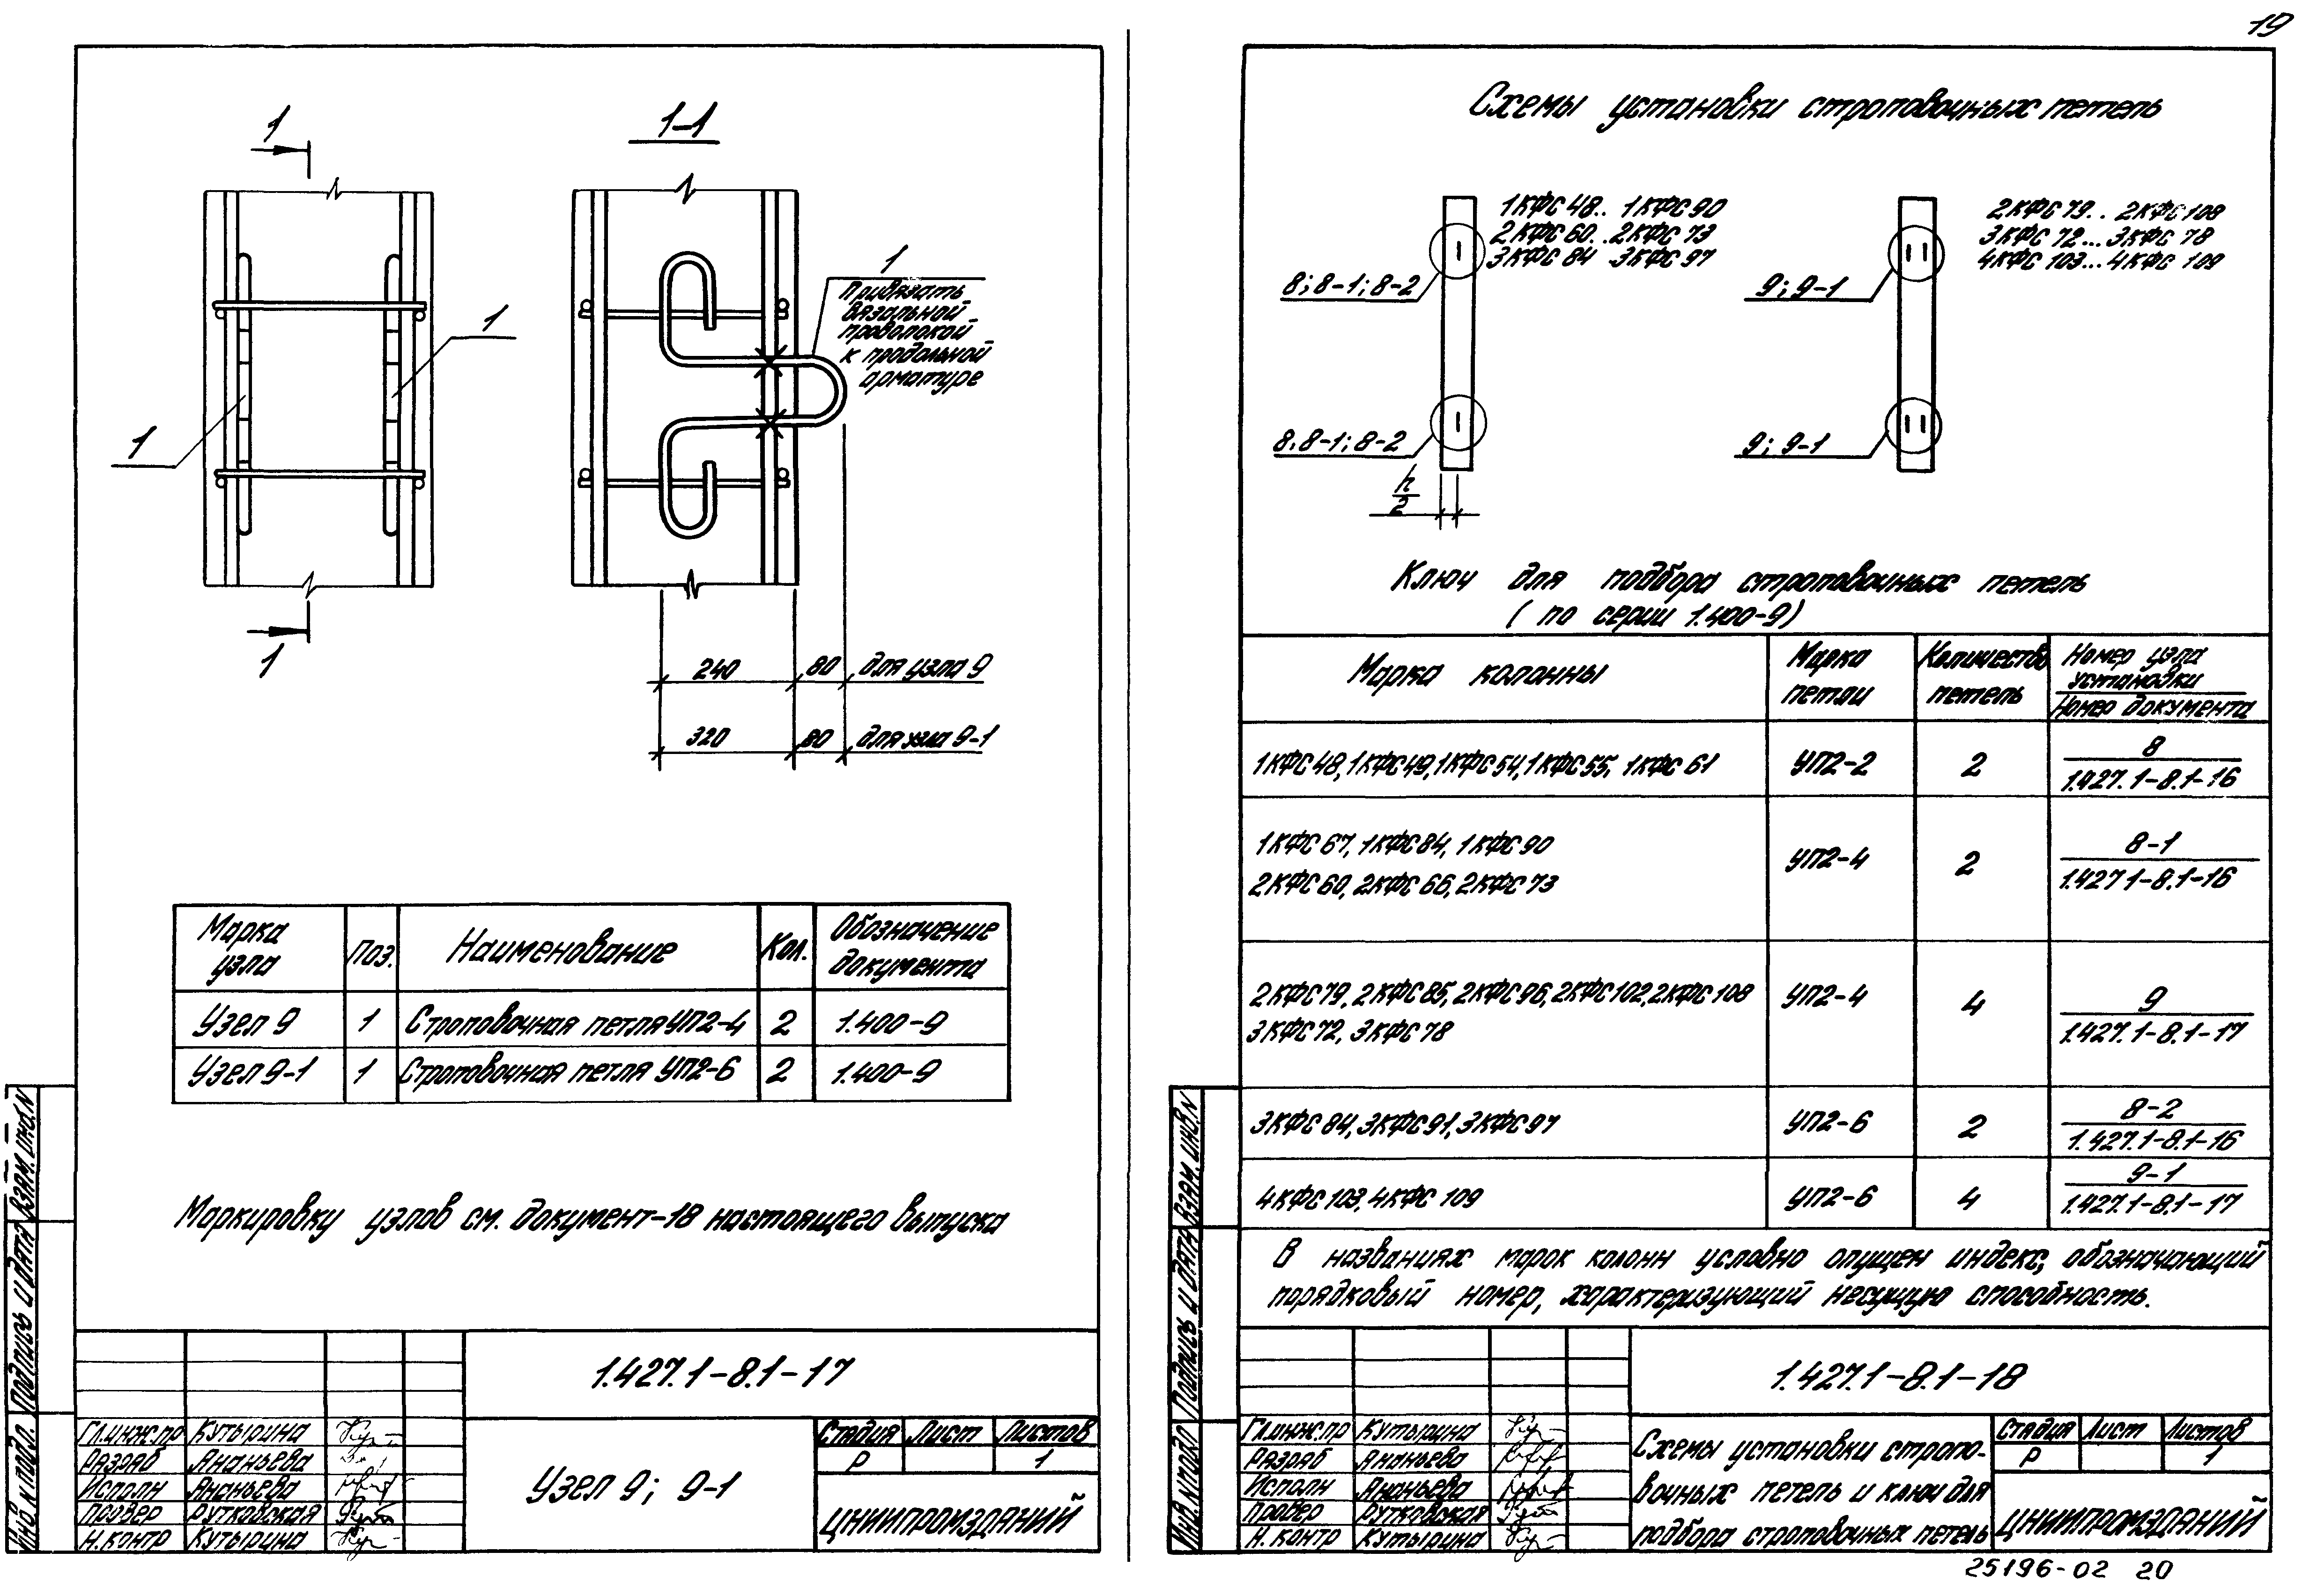 19
1
1-1
1
Привязать
вязальной
проволокой
к продольной
арматуре
1
1
1
240 80 для узла 9
320 80 для узла 9-1
Марка узла Поз. Наименование Кол. Обозначение документа
Узел 9 1 Строповочная петля УП2-4 2 1.400-9
Узел 9-1 1 Строповочная петля УП2-6 2 1.400-9
Маркировку узлов см. документ-18 настоящего выпуска
Инв. N подл. Подпись и дата Взам. инв. N
1.427.1-8.1-17
Гл.инж.пр Кутырина
Разраб Ананьева
Исполн Ананьева
Провер Рутковская
Н.контр Кутырина
Узел 9; 9-1
Стадия Лист Листов
Р 1
ЦНИИПРОМЗДАНИЙ
Схемы установки строповочных петель
1КФС 48.. 1КФС 90
2КФС 60..2КФС 73
3КФС 84 .3КФС 97
8; 8-1; 8-2
8; 8-1; 8-2
h
2
2КФС 79.. 2КФС 108
3КФС 72...3КФС 78
4КФС 103...4КФС 109
9; 9-1
9; 9-1
Ключ для подбора строповочных петель
(по серии 1.400-9)
Марка колонны Марка петли Количество петель Номер узла установки Номер документа
1КФС 48, 1КФС 49, 1КФС 54, 1КФС 55, 1КФС 61 УП2-2 2 8 1.427.1-8.1-16
1КФС 67, 1КФС 84, 1КФС 90
2КФС 60, 2КФС 66, 2КФС 73 УП2-4 2 8-1 1.427.1-8.1-16
2КФС 79, 2КФС 85, 2КФС 96, 2КФС 102, 2КФС 108
3КФС 72, 3КФС 78 УП2-4 4 9 1.427.1-8.1-17
3КФС 84, 3КФС 91, 3КФС 97 УП2-6 2 8-2 1.427.1-8.1-16
4КФС 103, 4КФС 109 УП2-6 4 9-1 1.427.1-8.1-17
В названиях марок колонн условно опущен индекс, обозначающий
порядковый номер, характеризующий несущую способность.
Инв. N подл Подпись и дата Взам. инв. N
1.427.1-8.1-18
Гл.инж.пр Кутырина
Разраб Ананьева
Исполн Ананьева
Провер Рутковская
Н. контр Кутырина
Схемы установки стропо-
вочных петель и ключ для
подбора строповочных петель
Стадия Лист Листов
Р 1
ЦНИИПРОМЗДАНИЙ
25196-02 20